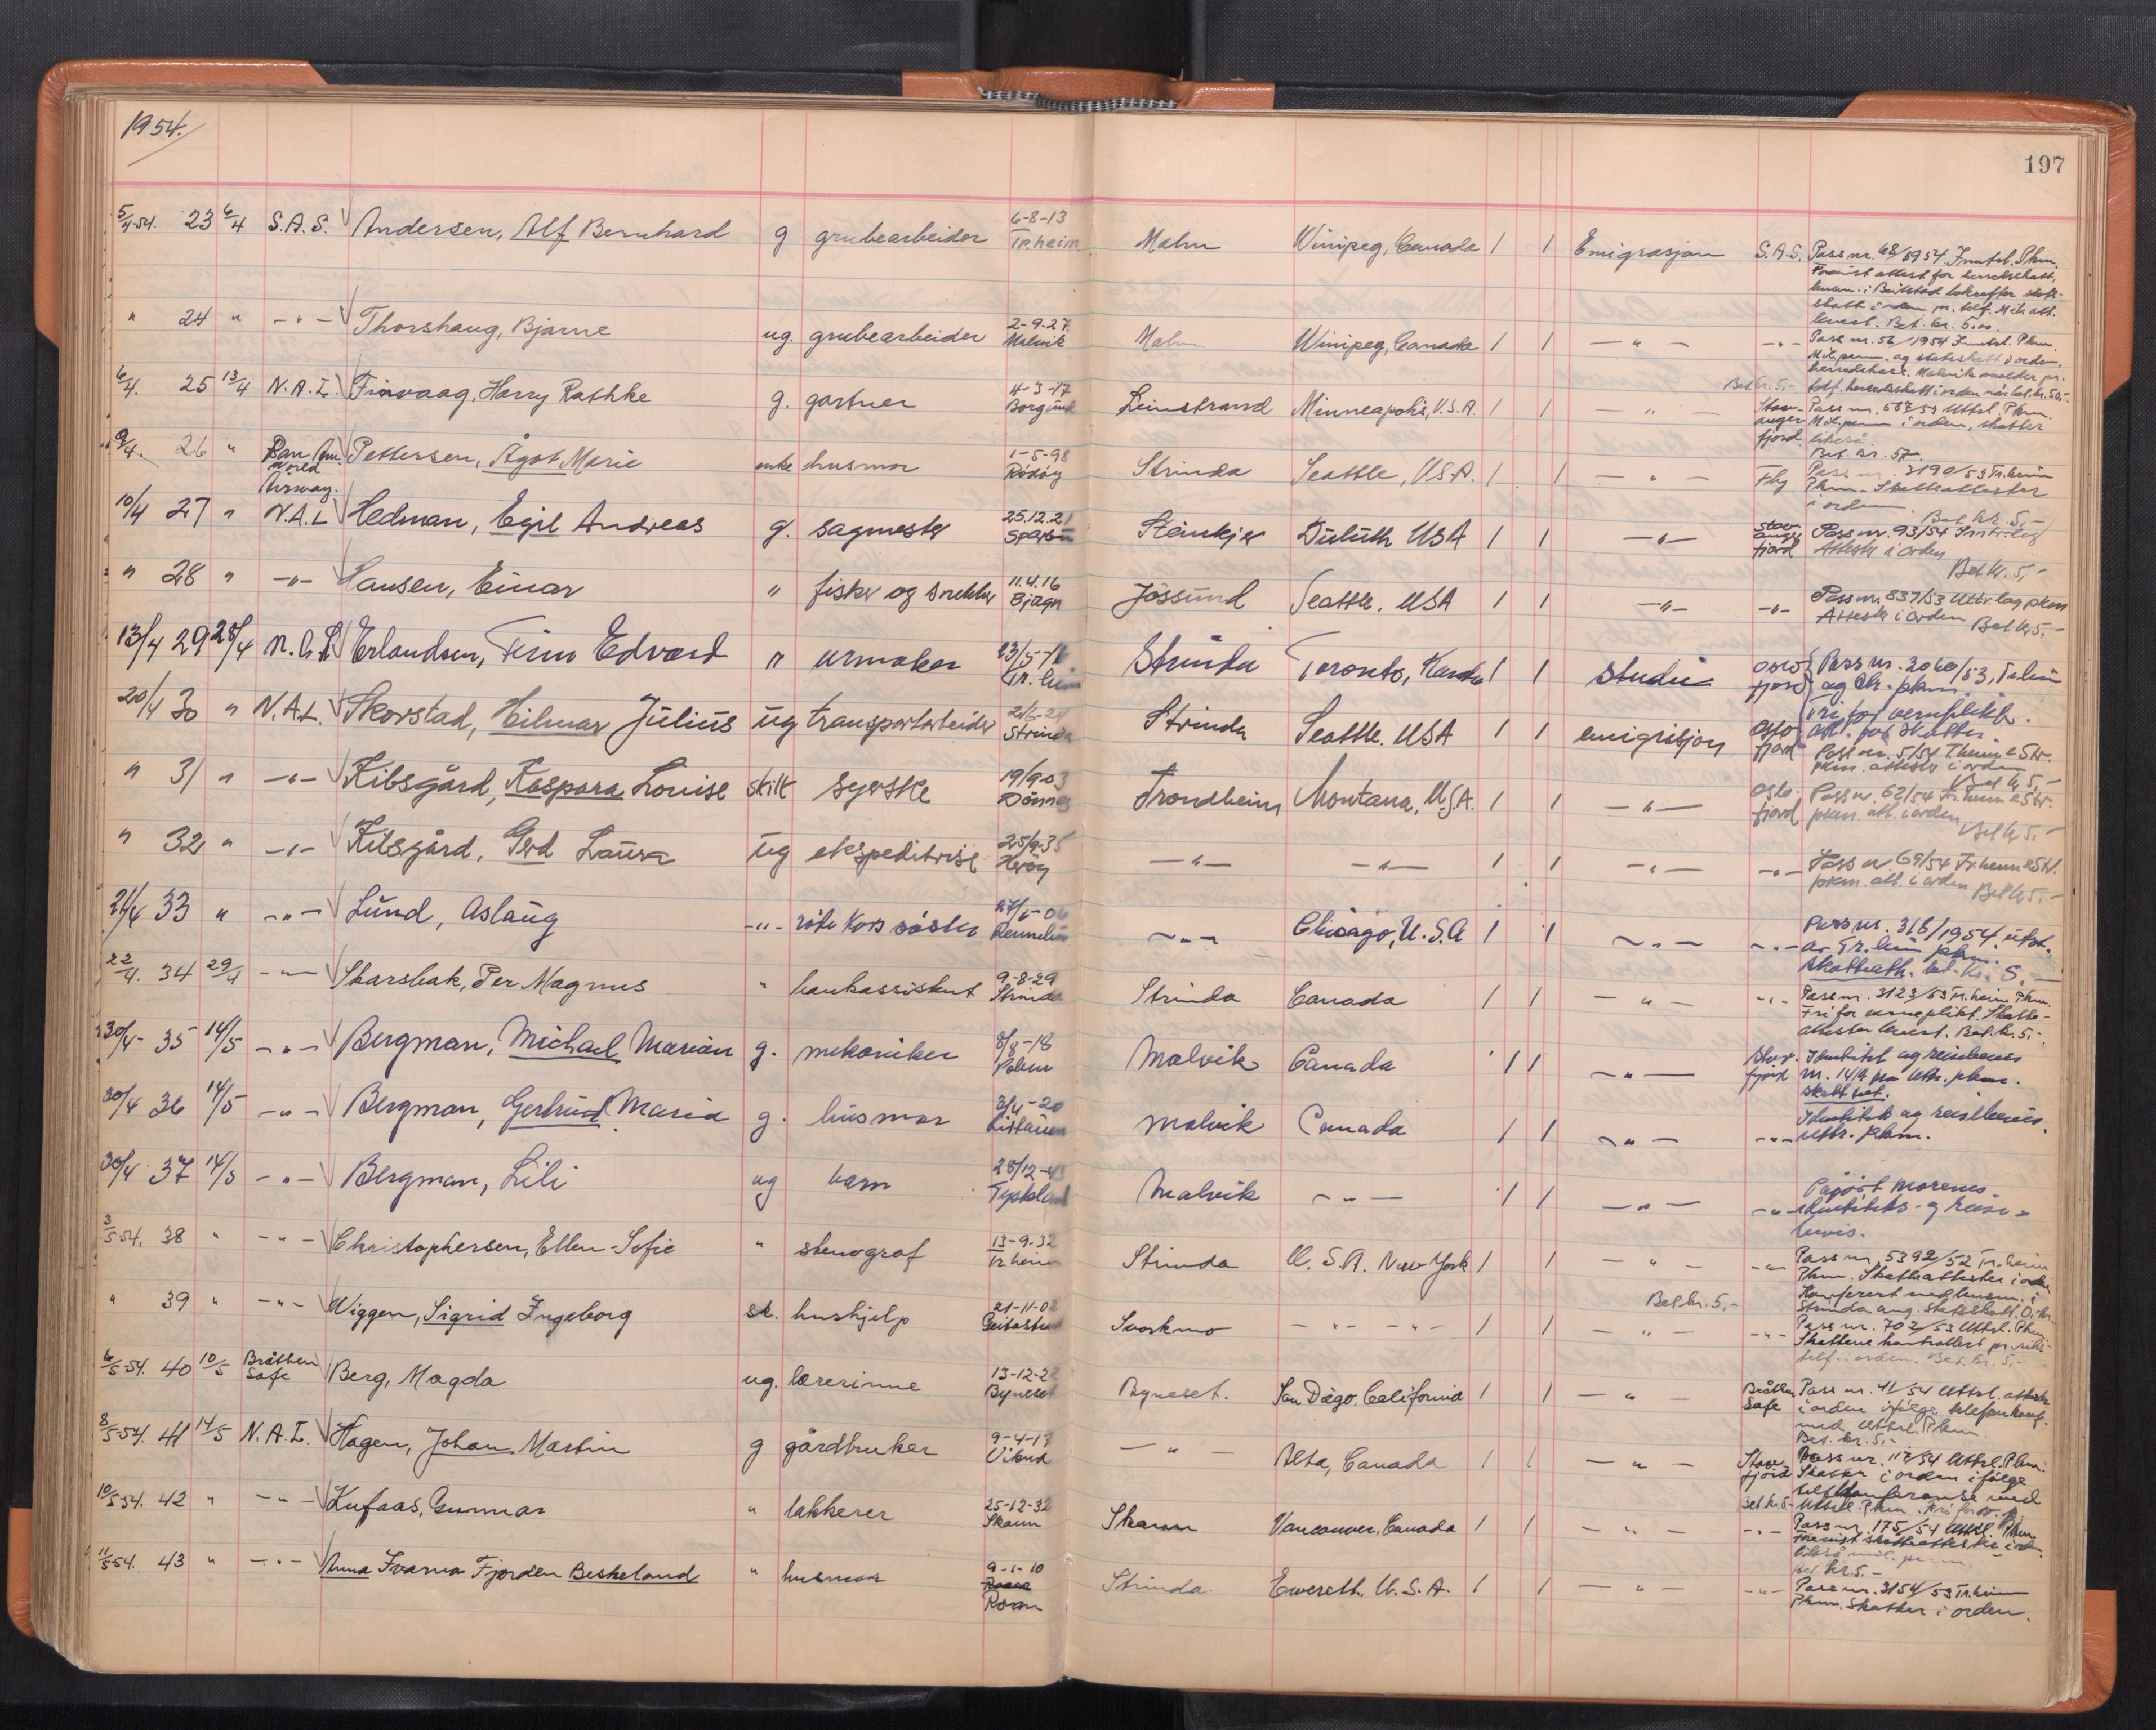 1954.
197
5/4-54. 23 6/4 S.A.S. Andersen, Alf Bernhard g grubearbeider 6-8-13 Tr.heim Malm Winipeg, Canada 1 1 Emigrasjon S.A.S. Pass nr. 68/1954 Inntrl. Pkm.
" 24 " -"- Thorshaug, Bjarne ug. grubearbeider 2-9-27 Malvik Malm Winipeg, Canada 1 1 -"- -"- Pass nr. 56/1954 Inntrl. Pkm.
6/4. 25 13/4 N.A.L. Finvaag, Harry Rathke g. gartner 4-3-17 Borgund Leinstrand Minneapolis, U.S.A. 1 1 -"- Stavangerfjord Pass nr. 587/53 Uttrl. Pkm.
Mil.perm i orden, skatter likeså.
9/4. 26 " Pan Am. World Airway. Pettersen, Ågot Marie enke husmor 1-5-98 Rödöy Strinda Seattle, U.S.A. 1 1 -"- Fly Pass nr. 3190/53 Tr.heim
Pkm. Skatteattester i orden Bet. kr. 5,-
10/4 27 " N.A.L Hedman, Egil Andreas g. sagmester 25.12.21 Sparbu Steinkjer Duluth USA 1 1 -"- Stavangerfjord Pass nr. 93/54 Inntrlag
Attester i orden Bet kr. 5,-
" 28 " -"- Hansen, Einar " fisker og snekker 11.4.16 Bjugn Jössund Seattle. USA 1 1 -"- -"- Pass nr. 837/53 Uttr.lag pkm
Attester i orden Bet kr 5,-
13/4 29 28/4 N.A.L Erlandsen, Finn Edvard " urmaker 23/5-16 Tr.heim Strinda Toronto, Kanada 1 1 studie Oslofjord Pass nr. 3060/53, Tr.heim
20/4 30 " N.A.L. Skorstad, Hilmar Julius ug transportarbeider Strinda Strinda Seattle. USA 1 1 emigrasjon Oslofjord Pass nr. 5/54 Tr.heim & Str.
pkm. attester i orden Bet kr 5,-
" 31 " -"- Kibsgård, Kaspara Louise skilt syerske 19/9-03 Dönnes Trondheim Montana, USA. 1 1 -"- Oslofjord Pass nr. 62/54 Tr.heim & Str.
pkm. att. i orden Bet kr 5,-
" 32 " -"- Kibsgård, Gerd Laura ug ekspeditrise 25/9-35 Heröy -"- -"- 1 1 -"- -"- Pass nr 69/54 Tr.heim & Str.
pkm. att. i orden Bet kr 5.-
21/4 33 " -"- Lund, Aslaug -"- röde kors söster 27/6-06 -"- Chicago, U.S.A 1 1 -"- -"- Pass nr. 318/1954 utst.
av Tr.heim pkm. skatteatt. bet. kr. 5,-
22/4. 34 29/4 -"- Skarsbak, Per Magnus " bankassistent 9-8-29 Strinda Strinda Canada 1 1 -"- -"- Pass nr. 3123/53 Tr.heim Pkm.
Fri for verneplikt. Skatteattester levert. Bet. kr. 5,-
30/4 35 14/5 -"- Bergman, Michael Marian g. mekaniker 8/8-18 Polen Malvik Canada 1 1 -"- Stav.fjord Identitet og reisebevis
30/4 36 14/5 -"- Bergman, Gertrud Maria g. husmor 3/4-20 Litauen Malvik Canada 1 1 -"- -"- Identitets og reisebevis.
Uttr. pkm.
30/4 37 14/5 -"- Bergman, Lili ug barn 28/12-43 Tyskland Malvik -"- 1 1 -"- -"- Påført morens
identitets- og reise-
bevis.
3/5-54. 38 " -"- Christophersen, Ellen-Sofie " stenograf 13-9-32 Tr.heim Strinda U.S.A. New York 1 1 -"- -"- Pass nr. 5392/52 Tr.heim
Pkm. Skatteattester i orden
Bet kr. 5,-
" 39 " -"- Wiggen, Sigrid Ingeborg sk. hushjelp 21-11-02 Svorkmo -"- -"- 1 1 -"- -"- Pass nr. 702/53 Uttrl. Pkm.
6/5-54. 40 10/5 Bråthen Safe Berg, Magda ug. lærerinne 13-12-22 Byneset Byneset. San Diego, California 1 1 -"- Bråthen Safe Pass nr. 41/54 Uttrl. attester
i orden ifølge telefonkonf.
med Uttrl. Pkm.
Bet. kr. 5,-
8/5-54. 41 14/5 N.A.L. Hagen, Johan Martin g gårdbruker 9-4-17 -"- Alta, Canada 1 1 -"- Stav.fjord Pass nr. 117/54 Uttrl. Pkm.
Skatter i orden ifølge
telf konferanse med
bet kr. 5- Uttrl. Pkm.
10/5-54. 42 " -"- Kufaas, Gunnar " lakkerer 25-12-32 Skaun Skaun Vancouver, Canada 1 1 -"- -"- Pass nr. 175/54 Uttrl. Pkm.
bet kr. 5.-
11/5-54. 43 " -"- Anna Ivarna Fjorden Beskeland " husmor 9-1-10 Roan Strinda Ewerett. U.S.A. 1 1 -"- -"- Pass nr. 3154/53 Tr.heim
Pkm. Skatter i orden.